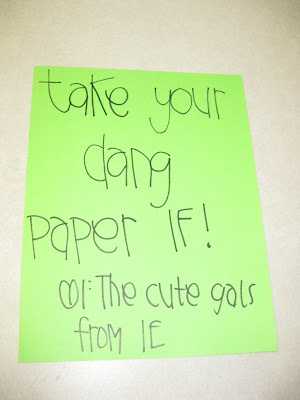 take your
dang
paper IF!
The cute gals
from IE